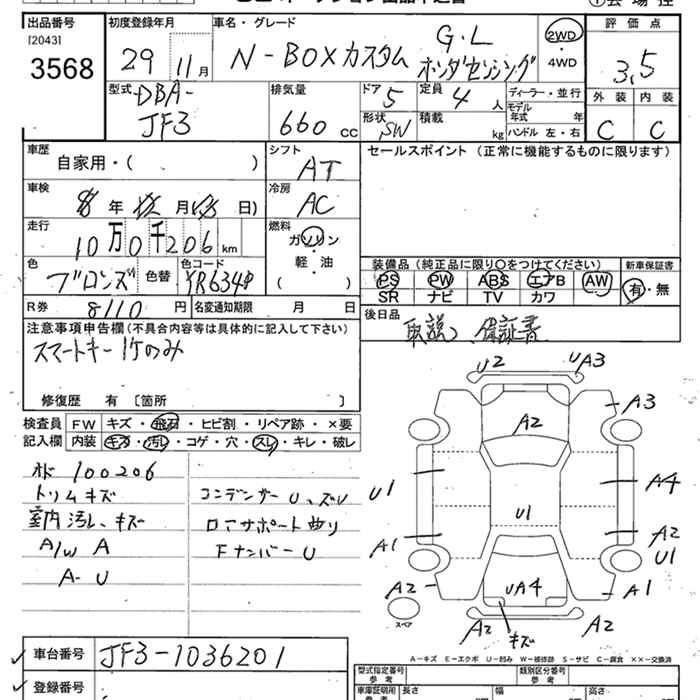 出品番号 初度登録年月 車名・グレード 評価点
[2043]
3568 29 11月 N-BOXカスタム G・L ホンダセンシング 2WD・4WD 3.5
外装 内装
C C
型式 DBA-JF3 排気量 660cc ドア 5 定員 4人 ディーラー・並行
形状 SW 積載 kg モデル年式 年
ハンドル 左・右
車歴 自家用・( ) シフト AT セールスポイント(正常に機能するものに限ります)
車検 年 月 日) 冷房 AC
走行 10万0千206km 燃料 ガソリン
軽・油
( )
色 ブロンズM 色替 色コード YR634P
装備品(純正品に限り○をつけてください) 新車保証書
PS PW ABS エアB AW 有・無
SR ナビ TV カワ
R券 8110円 名変通知期限 月 日
後日品 取説、保証書
注意事項申告欄(不具合内容等は具体的に記入して下さい)
スマートキー1ケのみ
修復歴 有〔箇所 〕
検査員記入欄 FW キズ・飛石・ヒビ割・リペア跡・×要
内装 キズ・汚レ・コゲ・穴・スレ・キレ・破レ
100206
トリムキズ
室内汚レ、キズ
A/W A
A-U
コンデンサーU、ズレ
ロアサポート曲り
FナンバーU
U2 UA3
A3
A2
U1 A4
U1
A1 A2
U1
A2 UA4 A1
スペア
A2 キズ A2
A-キズ E-エクボ U-凹み W-補修跡 S-サビ C-腐食 ××-交換済
車台番号 JF3-1036201
登録番号
型式指定番号 参考 類別区分番号 参考
車庫証明用 参考 長さ 幅 高さ